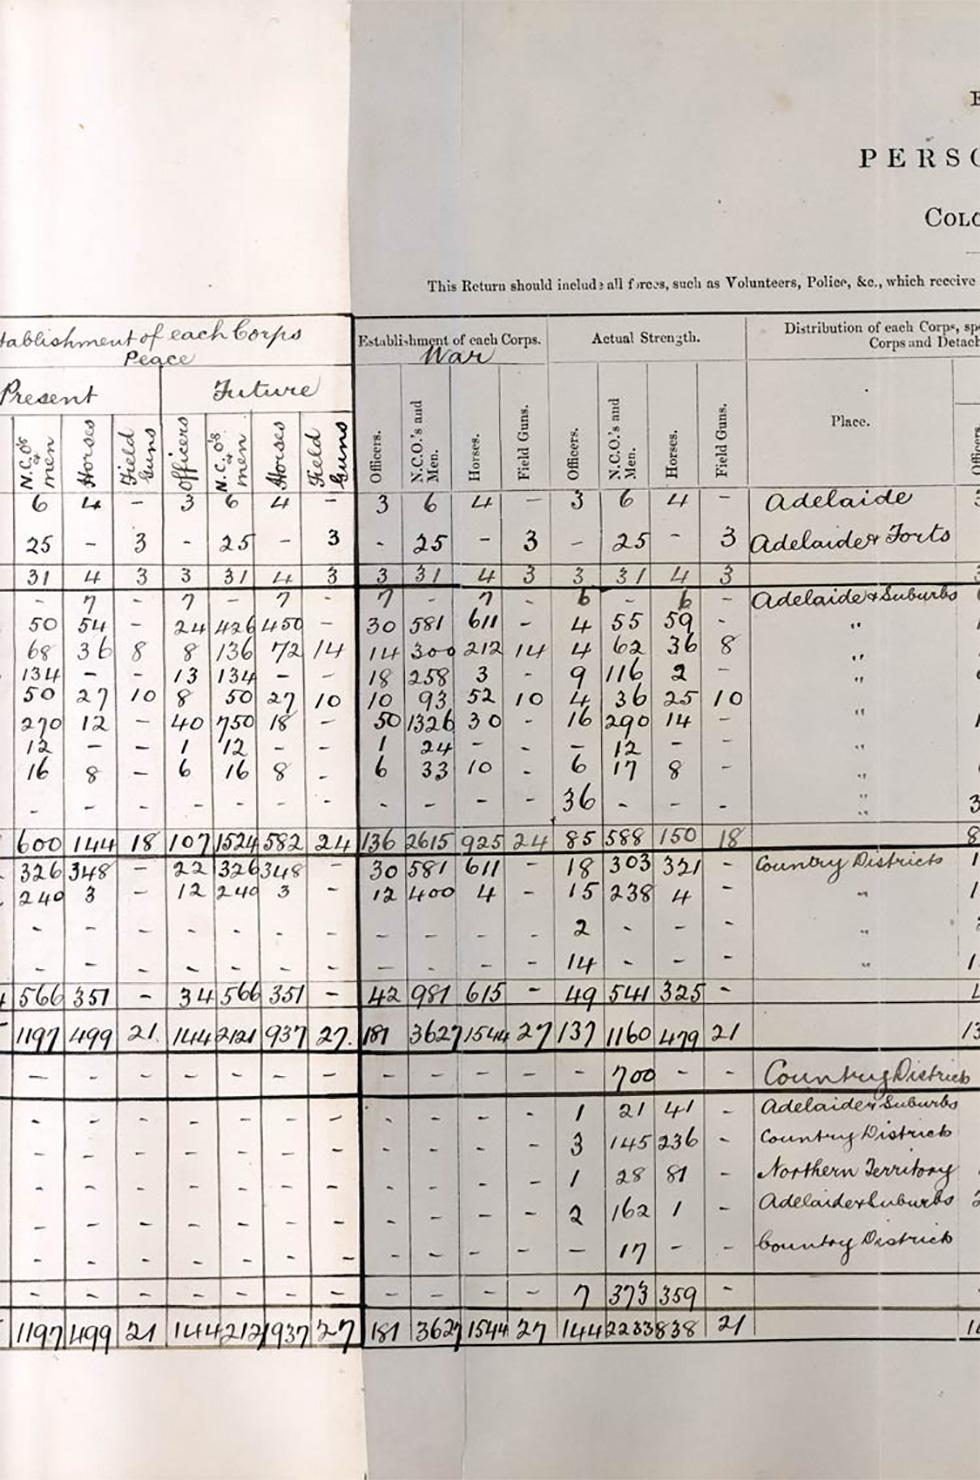 E
PERSO
COLO
This Return should include all forces, such as Volunteers, Police, &c., which receive
tablishment of each Corps Establishment of each Corps. Actual Strength. Distribution of each Corps, sp
Peace War Corps and Detach
Present Future
N.C.O's & men Horses Field Guns Officers N.C.O's & men Horses Field Guns Officers. N.C.O.'s and Men. Horses. Field Guns. Officers. N.C.O.'s and Men. Horses. Field Guns. Place. Officers
6 4 - 3 6 4 - 3 6 4 - 3 6 4 - Adelaide 3
25 - 3 - 25 - 3 - 25 - 3 - 25 - 3 Adelaide & Forts
31 4 3 3 31 4 3 3 31 4 3 3 31 4 3
- 7 - 7 - 7 - 7 - 7 - 6 - 6 - Adelaide & Suburbs
50 54 - 24 426 450 - 30 581 611 - 4 55 59 - "
68 36 8 8 136 72 14 14 300 212 14 4 62 36 8 "
134 - - 13 134 - - 18 258 3 - 9 116 2 - "
50 27 10 8 50 27 10 10 93 52 10 4 36 25 10
270 12 - 40 750 18 - 50 1326 30 - 16 290 14 - "
12 - - 1 12 - - 1 24 - - - 12 - - "
16 8 - 6 16 8 - 6 33 10 - 6 17 8 - "
- - - - - - - - - - - 36 - - - " 3
600 144 18 107 1524 582 24 136 2615 925 24 85 588 150 18 8
326 348 - 22 326 348 - 30 581 611 - 18 303 321 - Country Districts 1
240 3 - 12 240 3 - 12 400 4 - 15 238 4 - " 1
- - - - - - - - - - - 2 - - - "
- - - - - - - - - - - 14 - - - " 1
4 566 351 - 34 566 351 - 42 981 615 - 49 541 325 - 4
1197 499 21. 144 2121 937 27. 181 3627 1544 27 137 1160 479 21 13
- - - - - - - - - - - - 700 - - Country Districts
- - - - - - - - - - - 1 21 41 - Adelaide & Suburbs
- - - - - - - - - - - 3 145 236 - Country Districts
- - - - - - - - - - - 1 28 81 - Northern Territory
- - - - - - - - - - - 2 162 1 - Adelaide & Suburbs 2
- - - - - - - - - - - - 17 - - Country Districts
- - - - - - - - - - - 7 373 359 -
1197 499 21 144 2121 937 27 181 3627 1544 27 144 2233 838 21 14